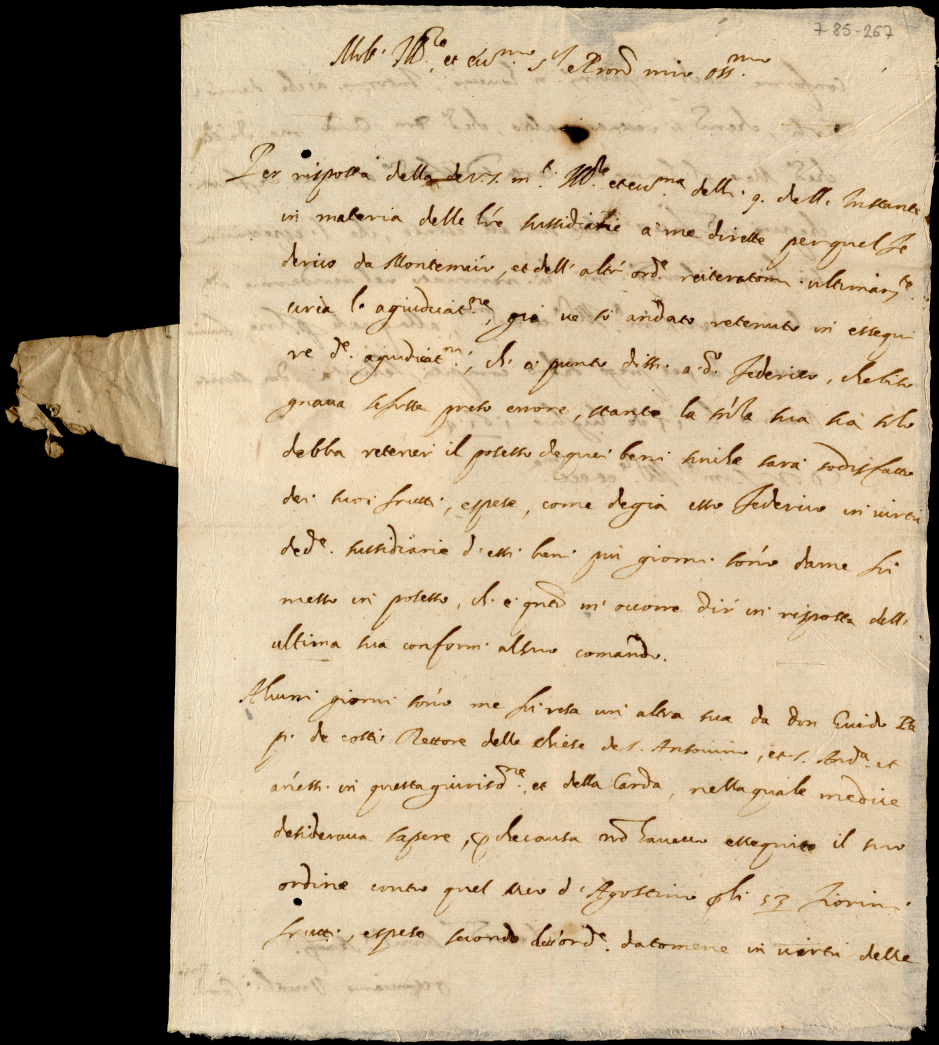 7-85-267
Molt' Ill.re et ecc.mo s.r e Pron mio oss.mo
Per risposta della de V.S. m.to Ill.re et ecc.ma delli 9. dell' Instante
in materia delle l're sussidiarie a me dirette per quel Fe
derico da Montemaio, et dell' altr' ord.e reiteratomi ultimam.te
circa l' agiudicat.ne, gia ve si andato retenuto in essegui
re d.a agiudicat.ne, ch' a punto dissi a d.o Federico, che biso
gnava se fosse preso errore, stante la s'ria sua sia solo
debba retener il possesso de quei beni sin che sara sodisfatto
dei suoi frutti, e spese, come de gia esso Federico in virtu
de d.e sussidiarie d' essi beni piu giorni sono da me fu
messo in possesso, ch' e q'nto m' occorre dir in risposta dell'
ultima sua conform' al suo comando.
Alcuni giorni sono me fu resa un altra sua da Don Guido Pa
pi de costi Rettore delle chiese de S. Antonino, et S. And.a et
annessi in questa giurisd.ne, et della Carda, nella quale me dice
desiderava sapere, p che causa non havesse essequito il suo
ordine contro quel Meo d' Agostino p li 53 fiorini
frutti, e spese secondo l'ord.e datomene in virtu delle